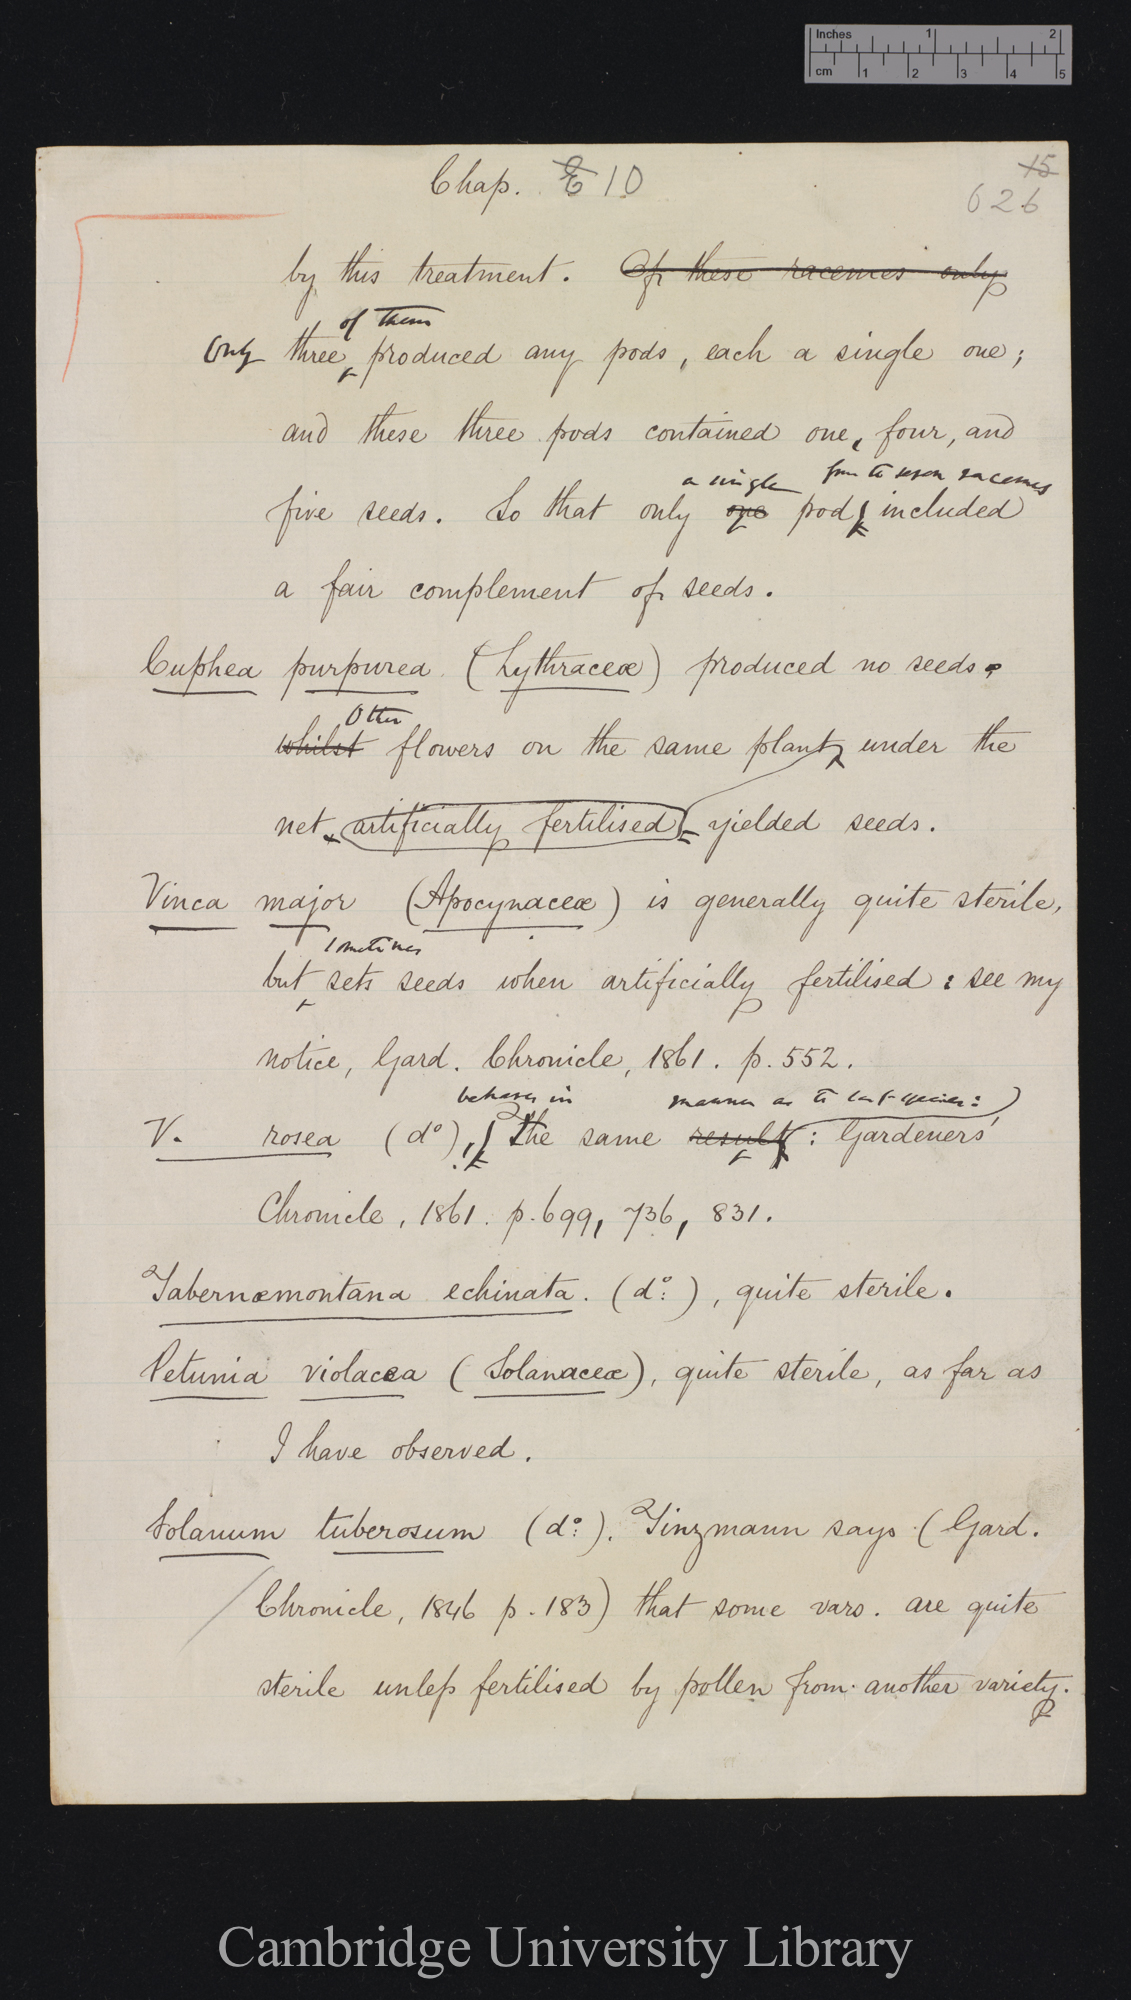 Inches 1 2
cm 1 2 3 4 5
Chap. E 10
15
626
by this treatment. Of these racemes only
of them
Only three produced any pods, each a single one;
and these three pods contained one, four, and
a single from the seven racemes
five seeds. So that only one pod included
a fair complement of seeds.
Cuphea purpurea (Lythraceæ) produced no seeds.
Other
whilst flowers on the same plant, under the
net, artificially fertilised yielded seeds.
Vinca major (Apocynaceæ) is generally quite sterile,
sometimes
but sets seeds when artificially fertilised: see my
notice, Gard. Chronicle, 1861. p. 552.
behaves in manner as the last species:
V. rosea (do), the same result: Gardeners'
Chronicle, 1861. p. 699, 736, 831.
Tabernæmontana echinata. (do:), quite sterile.
Petunia violacea (Solanaceæ), quite sterile, as far as
I have observed.
Solanum tuberosum (do:). Tinzmann says (Gard.
Chronicle, 1846 p. 183) that some vars. are quite
sterile unless fertilised by pollen from another variety.
Cambridge University Library